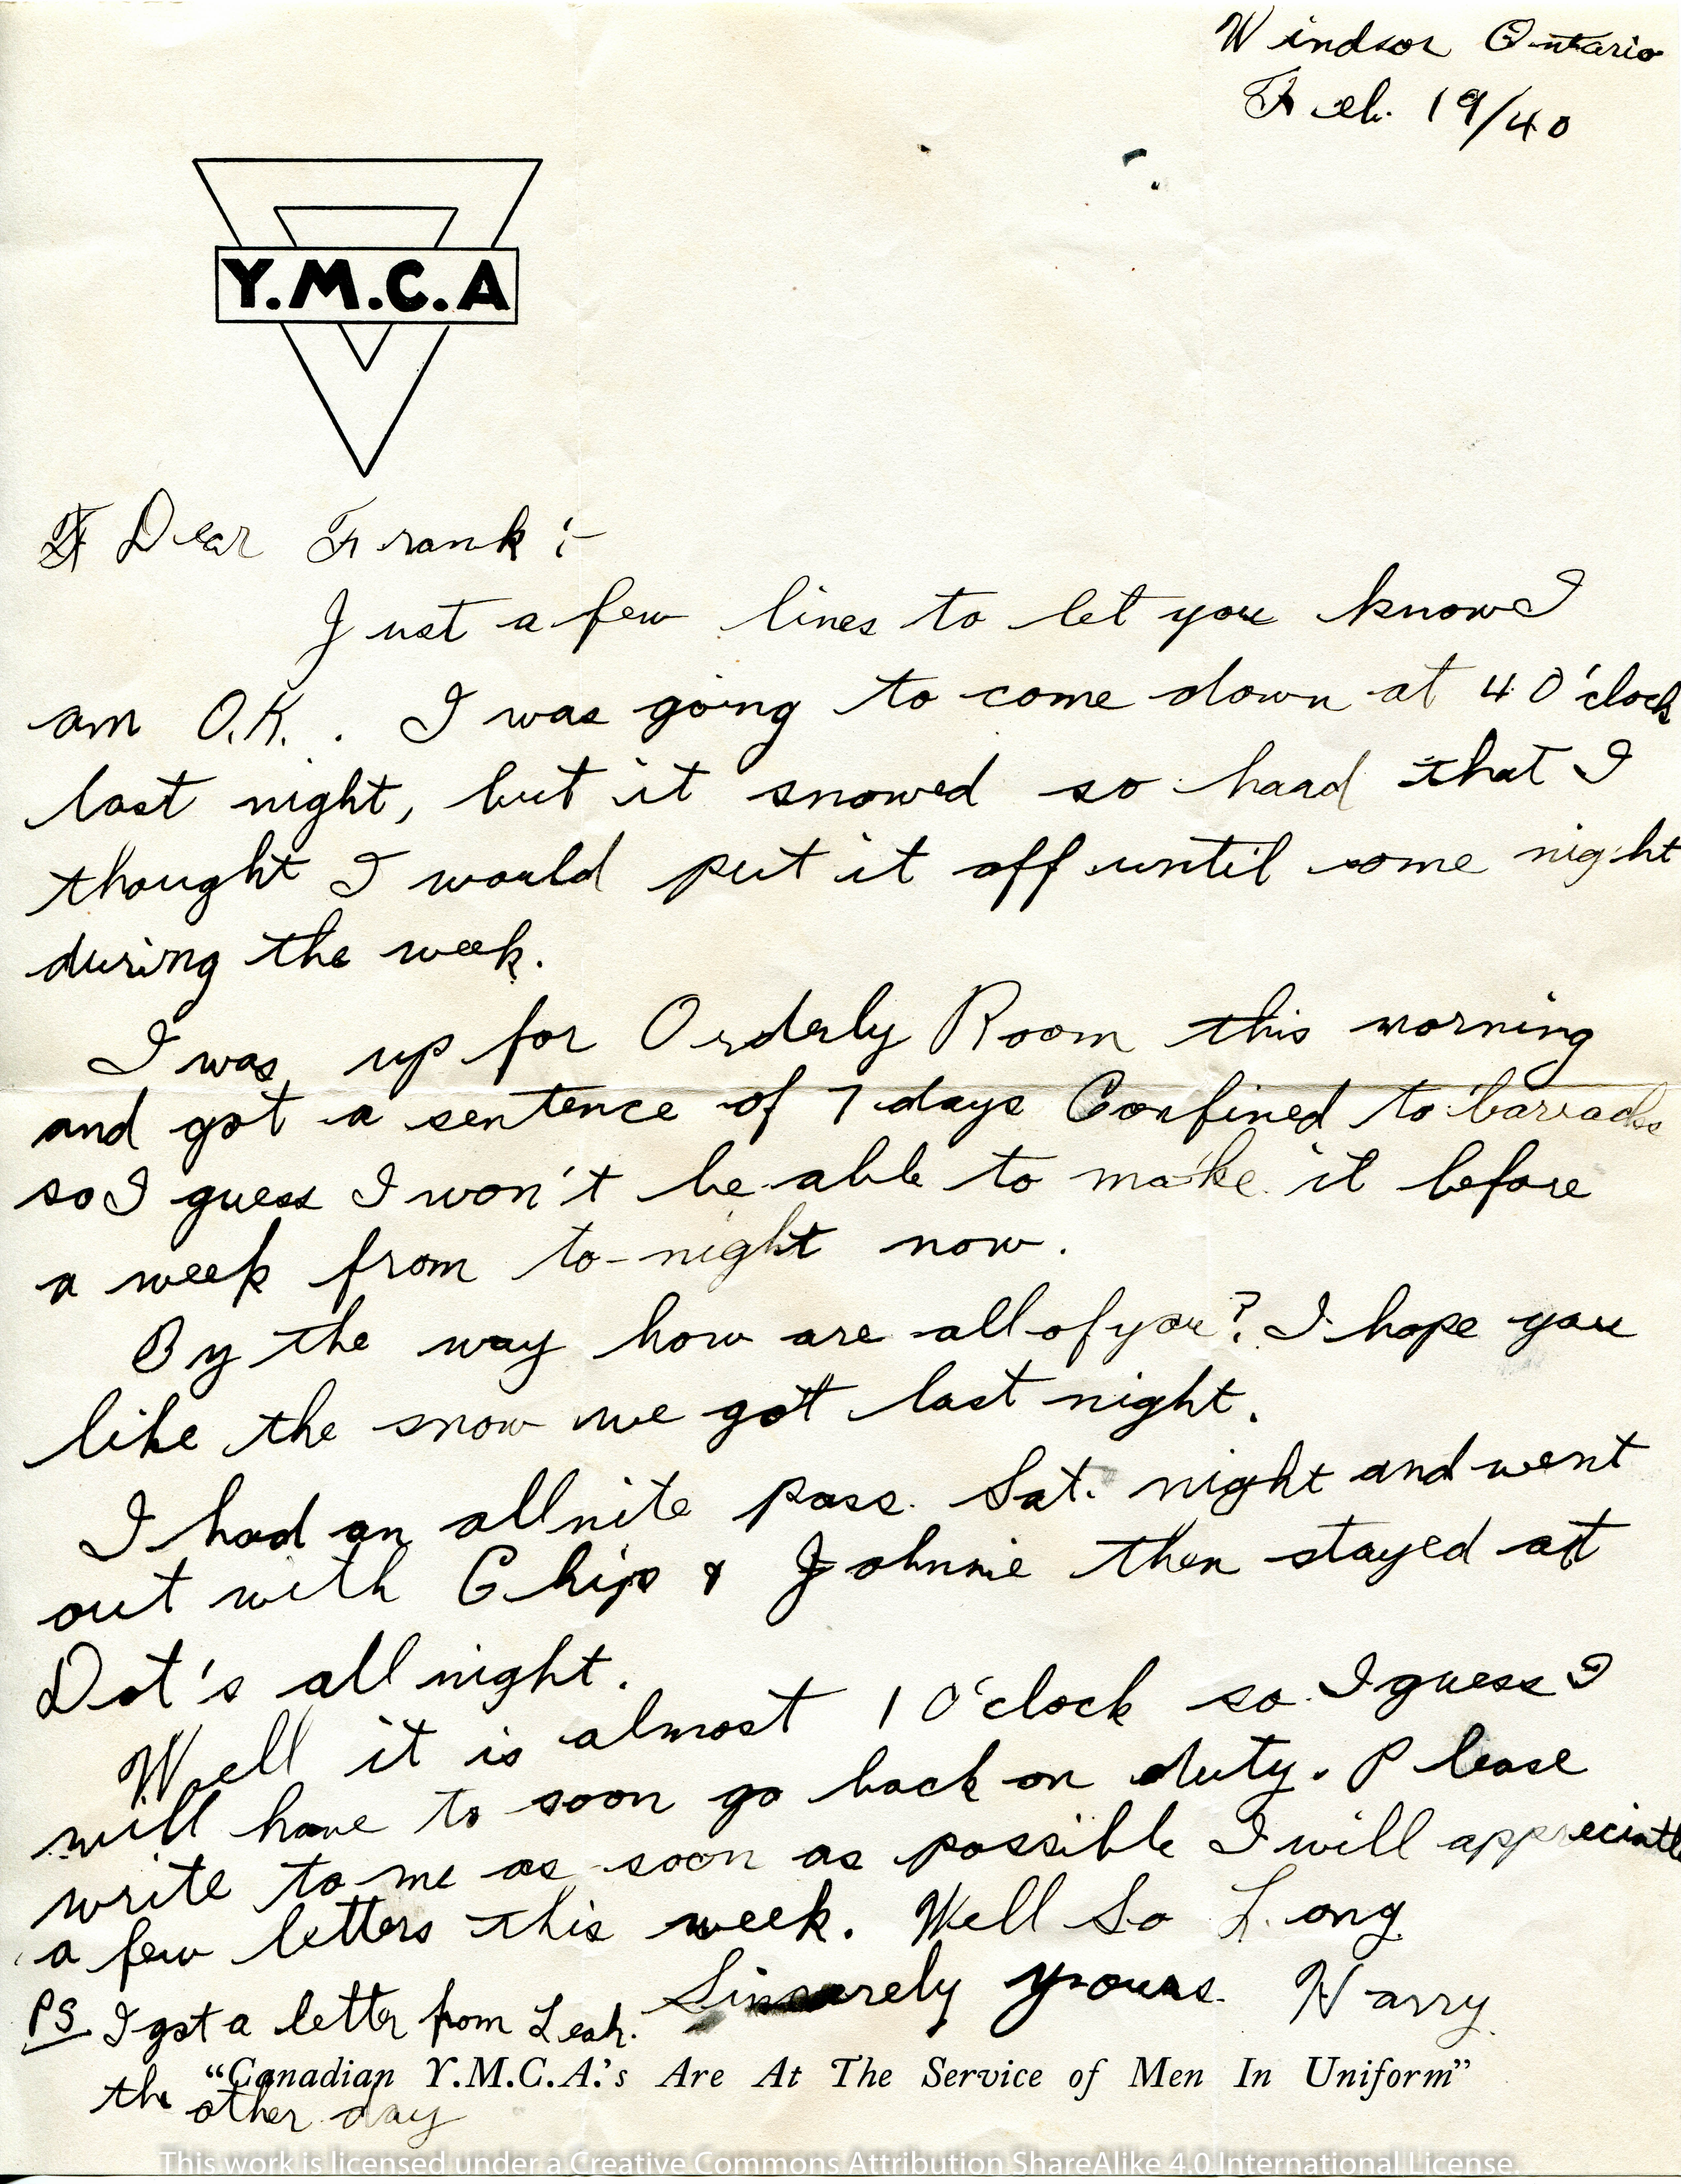 Windsor Ontario
Feb. 19/40
Y.M.C.A
Dear Frank :-
Just a few lines to let you know I
am O.K. . I was going to come down at 4 O'clock
last night, but it snowed so hard that I
thought I would put it off until some night
during the week.
I was up for Orderly Room this morning
and got a sentence of 7 days Confined to barracks
so I guess I won't be able to make it before
a week from to-night now.
By the way how are all of you? I hope you
like the snow we got last night.
I had an allnite pass. Sat. night and went
out with Chip & Johnnie then stayed at
Dot's all night.
Well it is almost 1 O'clock so I guess I
will have to soon go back on duty. Please
write to me as soon as possible I will appreciate
a few letters this week. Well So Long
Sincerely yours. Harry.
PS I got a letter from Leah.
the other day
"Canadian Y.M.C.A.'s Are At The Service of Men In Uniform"
This work is licensed under a Creative Commons Attribution ShareAlike 4.0 International License